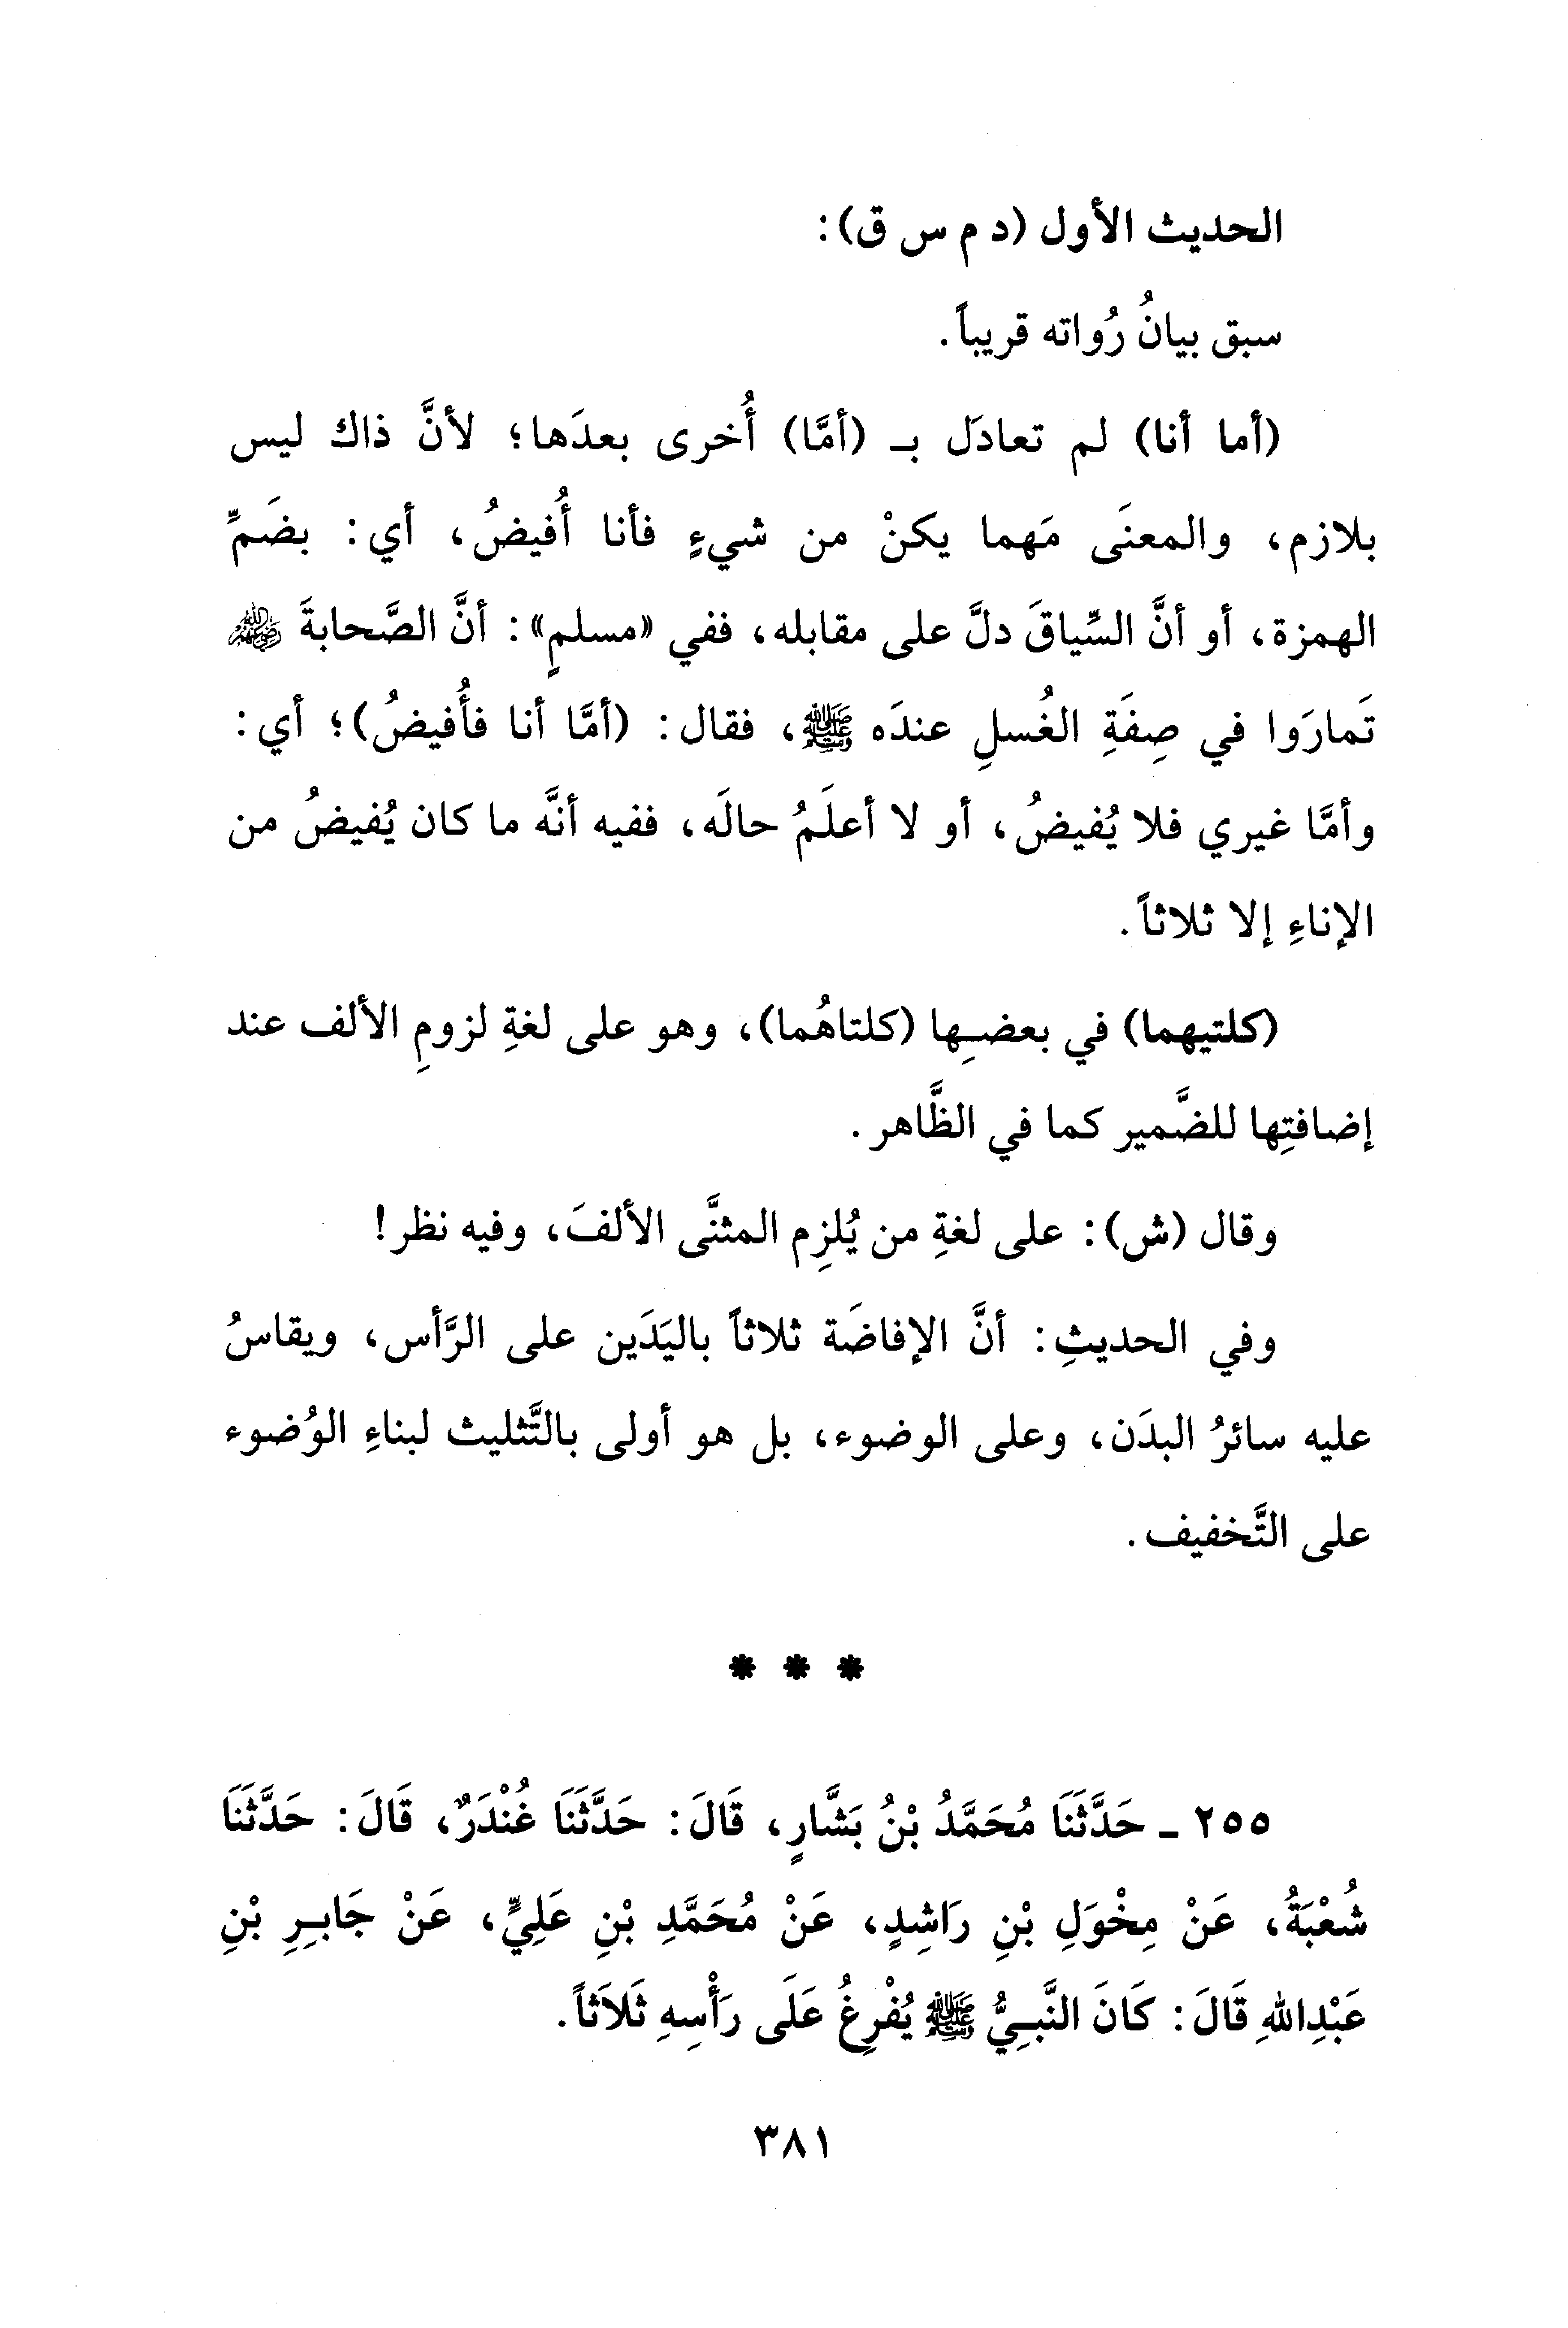 الحديث الأول (د م س ق):
سبق بيانُ رُواته قريباً.
(أما أنا) لم تعادَل بـ (أمَّا) أُخرى بعدَها؛ لأنَّ ذاك ليس
بلازم، والمعنَى مَهما يكنْ من شيءٍ فأنا أُفيضُ، أي: بضَمِّ
الهمزة، أو أنَّ السِّياقَ دلَّ على مقابله، ففي «مسلمٍ»: أنَّ الصَّحابةَ ﵃
تَمارَوا في صِفَةِ الغُسلِ عندَه ﷺ، فقال: (أمَّا أنا فأُفيضُ)؛ أي:
وأمَّا غيري فلا يُفيضُ، أو لا أعلَمُ حالَه، ففيه أنَّه ما كان يُفيضُ من
الإناءِ إلا ثلاثاً.
(كلتيهما) في بعضِها (كلتاهُما)، وهو على لغةِ لزومِ الألف عند
إضافتِها للضَّمير كما في الظَّاهر.
وقال (ش): على لغةِ من يُلزِم المثنَّى الألفَ، وفيه نظر!
وفي الحديثِ: أنَّ الإفاضَة ثلاثاً باليَدَين على الرَّأس، ويقاسُ
عليه سائرُ البدَن، وعلى الوضوء، بل هو أولى بالتَّثليث لبناءِ الوُضوء
على التَّخفيف.
* * *
٢٥٥ ـ حَدَّثَنَا مُحَمَّدُ بْنُ بَشَّارٍ، قَالَ: حَدَّثَنَا غُنْدَرٌ، قَالَ: حَدَّثَنَا
شُعْبَةُ، عَنْ مِخْوَلِ بْنِ رَاشِدٍ، عَنْ مُحَمَّدِ بْنِ عَلِيٍّ، عَنْ جَابِرِ بْنِ
عَبْدِاللهِ قَالَ: كَانَ النَّبِيُّ ﷺ يُفْرِغُ عَلَى رَأْسِهِ ثَلاَثاً.
٣٨١